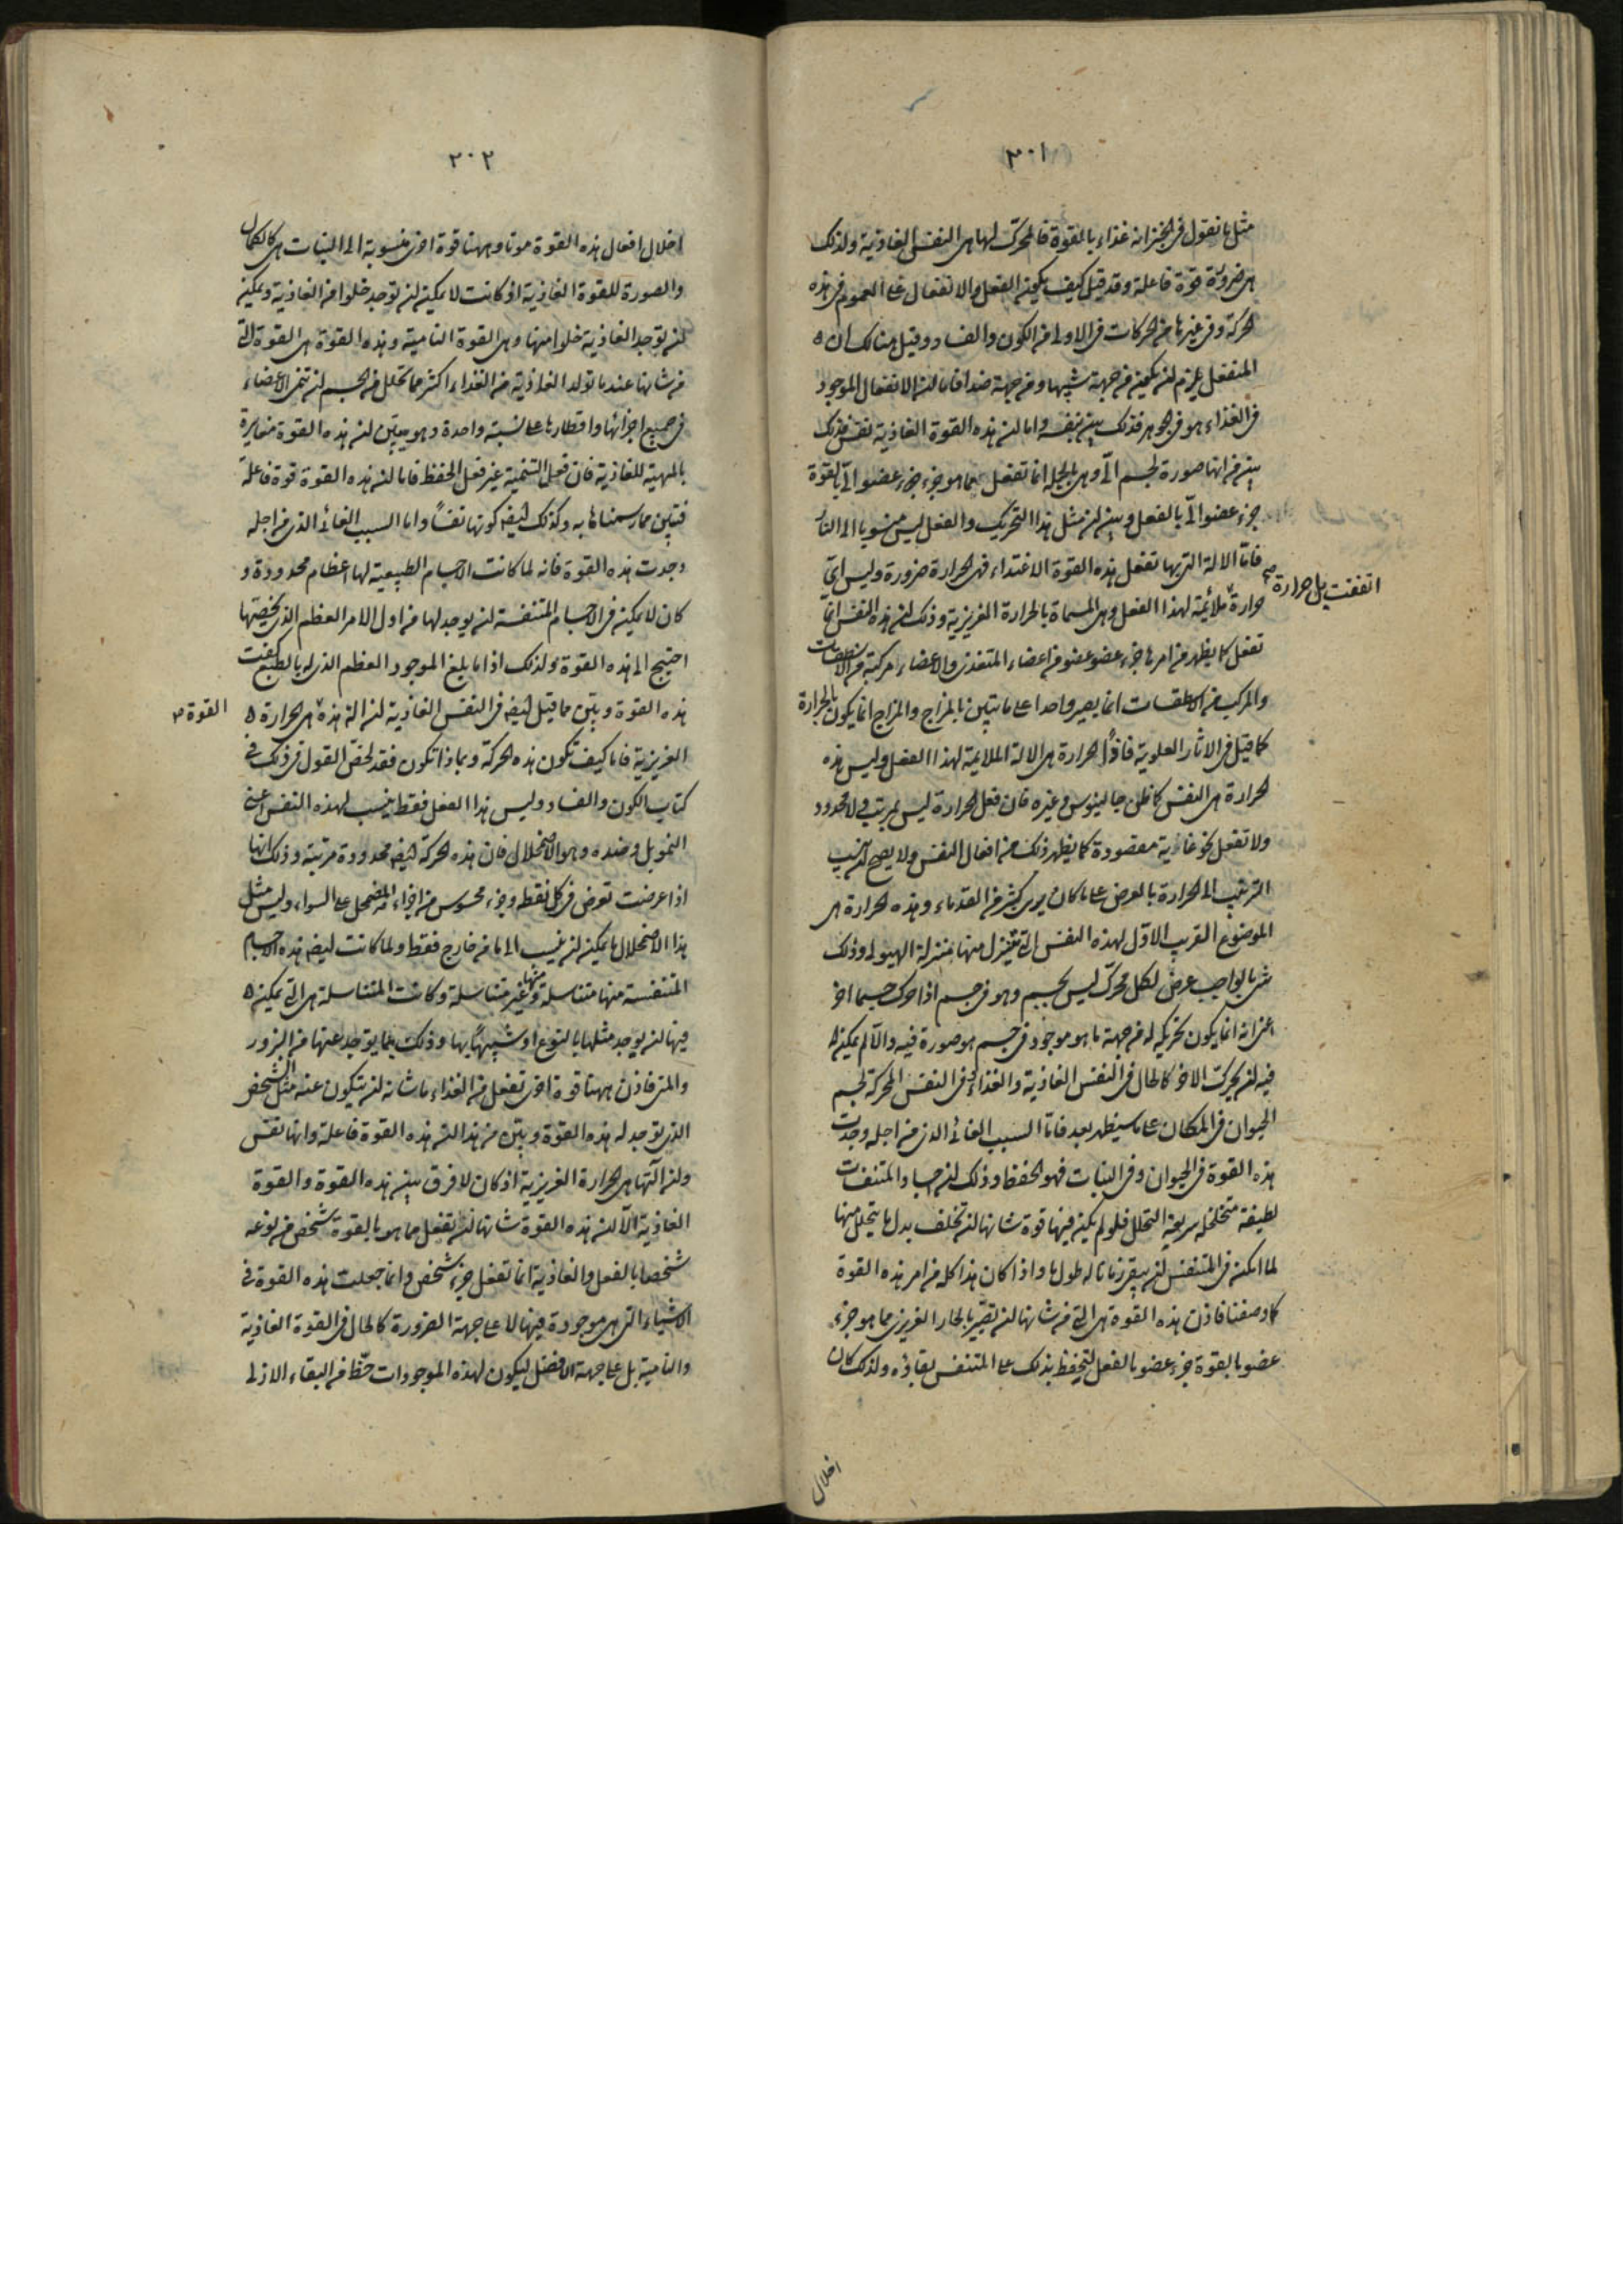 ٢٠١
مثل ما نقول فى الخبز انه غذاء بالقوة فالمحرك لها هى النفس الغاذية ولذلك
هى ضرورة قوة فاعلة وقد قيل كيف يكون الفعل والانفعال على العموم فى هذه
الحركة وفى غيرها من الحركات فى الاولى من الكون والفساد وقيل هنالك ان
المنفعل يلزم ان يكون من جهة شبيها ومن جهة ضدا فاما ان الانفعال الموجود
فى الغذاء هو فى الجوهر فذلك بين بنفسه واما ان هذه القوة الغاذية نفس فذلك
بين من انها صورة لجسم آلى وهى بالجملة انما تفعل مما هو جزء عضو آلى بالقوة
جزء عضو آلى بالفعل وبين ان مثل هذا التحريك والفعل ليس منسوبا الى النار
فاما الالة التى بها تفعل هذه القوة الاغتذاء فهى الحرارة ضرورة وليس اى
اتفقت بل حرارة صح
حرارة ملائمة لهذا الفعل وهى المسماة بالحرارة الغريزية وذلك ان هذه النفس انما
تفعل كما يظهر من امرها جزء عضو عضو من اعضاء المتغذى والاعضاء مركبة من الاسطقسات
والمركب من الاسطقسات انما يصير واحدا على ما تبين بالمزاج والمزاج انما يكون بالحرارة
كما قيل فى الاثار العلوية فاذًا الحرارة هى الالة الملائمة لهذا الفعل وليس هذه
الحرارة هى النفس كما ظن جالينوس وغيره فان فعل الحرارة ليس بمرتب ولا محدود
ولا تفعل نحو غاية مقصودة كما يظهر ذلك من افعال النفس ولا يصح ان ينسب
الترتيب الى الحرارة بالعرض على ما كان يرى كثير من القدماء وهذه الحرارة هى
الموضوع القريب الاول لهذه النفس التى تتنزل منها منزلة الهيولى وذلك
شئ بالواجب عرض لكل محرك ليس بجسم وهو فى جسم اذا حرك جسما اخر
اعنى انه انما يكون تحريكه له من جهة ما هو موجود فى جسم هو صورة فيه والا لم يمكن
فيه ان يحرك الاخر كالحال فى النفس الغاذية والغذاء وفى النفس المحركة لجسم
الحيوان فى المكان على ما سيظهر بعد فاما السبب الغائى الذى من اجله وجدت
هذه القوة فى الحيوان وفى النبات فهو الحفظ وذلك ان اجساد المتنفسات
لطيفة متخلخلة سريعة التحلل فلو لم يكن فيها قوة شانها ان تخلف بدل ما يتحلل منها
لما امكن فى المتنفس ان يبقى زمانا له طول ما واذا كان هذا كله من امر هذه القوة
كما وصفنا فاذن هذه القوة هى التى من شانها ان تصير بالحار الغريزى مما هو جزء
عضو بالقوة جزء عضو بالفعل لتحفظ بذلك على المتنفس بقاؤه ولذلك كان
اخلال
٢٠٢
اخلال افعال هذه القوة موتا وههنا قوة اخرى منسوبة الى النبات هى كالكمال
والصورة للقوة الغاذية اذ كانت لا يمكن ان توجد خلوا من الغاذية ويمكن
ان توجد الغاذية خلوا منها وهى القوة النامية وهذه القوة هى القوة التى
من شانها عند ما تولد الغاذية من الغذاء اكثر مما تحلل من الجسم ان تنمى الاعضاء
فى جميع اجزائها واقطارها على نسبة واحدة وهو بين ان هذه القوة مغايرة
بالمهية للغاذية فان فعل التنمية غير فعل الحفظ فاما ان هذه القوة قوة فاعلة
فتبين مما رسمناها به وكذلك ايضا كونها نفسًا واما السبب الغائى الذى من اجله
وجدت هذه القوة فانه لما كانت الاجسام الطبيعية لها اعظام محدودة و
كان لا يمكن فى الاجسام المتنفسة ان يوجد لها من اول الامر العظم الذى يخصها
احتيج الى هذه القوة ولذلك اذا ما بلغ الموجود العظم الذى له بالطبع كفت
هذه القوة وبين مما قيل ايضا فى النفس الغاذية ان الة هذه هى الحرارة
القوة ص
الغريزية فاما كيف تكون هذه الحركة وبماذا تكون فقد لخص القول فى ذلك فى
كتاب الكون والفساد وليس هذا الفعل فقط ينسب لهذه النفس اعنى
النمو بل وضده وهو الاضمحلال فان هذه الحركة ايضا محدودة مرتبة وذلك انها
اذا عرضت تعرض فى كل نقطة وجزء محسوس من اجزاء المضمحل على السواء وليس مثل
هذا الاضمحلال ما يمكن ان ينسب الى ما من خارج فقط ولما كانت ايضا هذه الاجسام
المتنفسة منها متناسلة ومنها غير متناسلة وكانت المتناسلة هى التى يمكن
فيها ان يوجد مثلها بالنوع او شبيهًا بها وذلك بما يوجد عنها من البزور
والمنى فاذن ههنا قوة اخرى تفعل من الغذاء ما شانه ان يتكون عنه مثل الشخص
الذى توجد له هذه القوة وبين من هذا ان هذه القوة فاعلة وانها نفس
وان آلتها هى الحرارة الغريزية اذ كان لا فرق بين هذه القوة والقوة
الغاذية الا ان هذه القوة شانها ان تفعل مما هو بالقوة شخص من نوعه
شخصا بالفعل والغاذية انما تفعل جزء شخص وانما جعلت هذه القوة فى
الاشياء التى هى موجودة فيها لا على جهة الضرورة كالحال فى القوة الغاذية
والنامية بل على جهة الافضل ليكون لهذه الموجودات حظ من البقاء الازلى